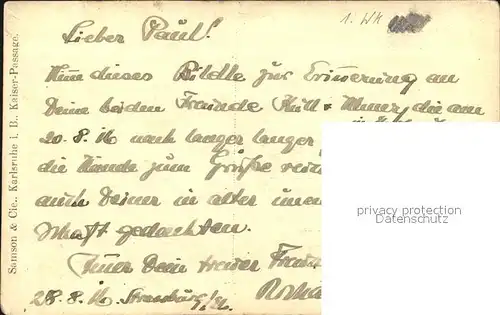 1. WK
Lieber Paul!
Nimm dieses Bildle zur Erinnerung an
Deine beiden Freunde & die am
20.8.16 nach langer langer
die Hände zum Gruße
auch Deiner in alter
schaft gedachten.
Immer Dein treuer
28.8.16. Strassburg i/E.
Samson & Cie., Karlsruhe i. B., Kaiser-Passage.
privacy protection
Datenschutz